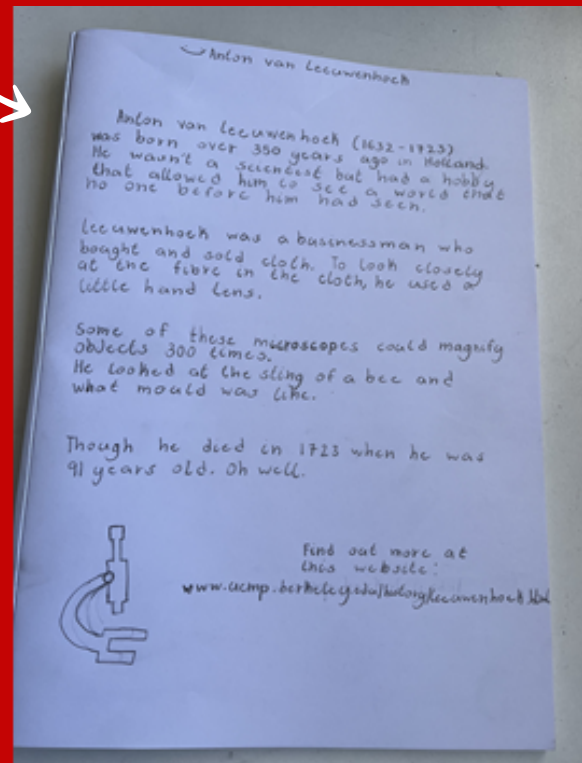 Anton van Leeuwenhoek
Anton van Leeuwenhoek (1632-1723)
was born over 350 years ago in Holland.
He wasn't a scientist but had a hobby
that allowed him to see a world that
no one before him had seen.
Leeuwenhoek was a businessman who
bought and sold cloth. To look closely
at the fibre in the cloth, he used a
little hand lens.
Some of these microscopes could magnify
objects 300 times.
He looked at the sting of a bee and
what mould was like.
Though he died in 1723 when he was
91 years old. Oh well.
Find out more at
this website:
www.ucmp.berkeley.edu/history/leeuwenhoek.html